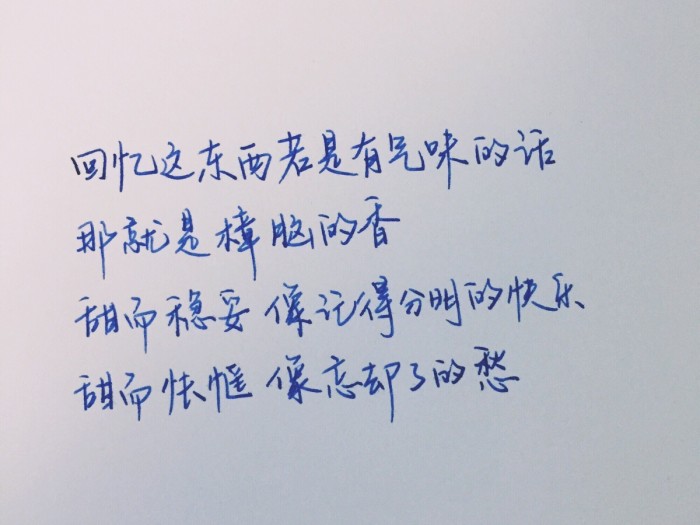 回忆这东西若是有气味的话
那就是樟脑的香
甜而稳妥 像记得分明的快乐
甜而怅惘 像忘却了的愁